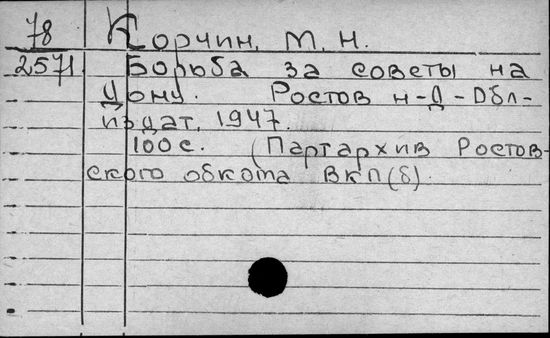 78
2571
Корчин, М. Н.
Борьба за советы на
Дону. Ростов н-Д-Обл-
издат, 1947.
100 с. (Партархив Ростов-
ского обкота ВКП(б).